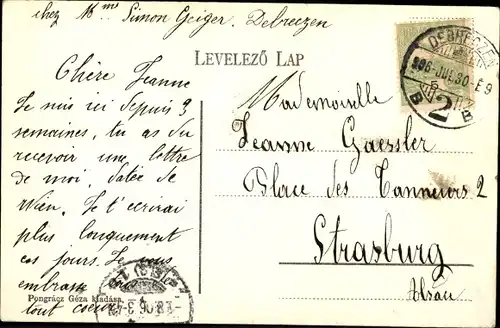 chez Mme Simon Geiger, Debreczen
LEVELEZŐ LAP
Chère Jeanne
Je suis ici depuis 3
semaines, tu as du
recevoir une lettre
de moi, datée de
Wien. Je t'ecrirai
plus longuement
ces jours. Je vous
embrasse
tout coeur
Pongrácz Géza kiadása,
Mademoiselle
Jeanne Gaessler
Place des Tanneurs 2
Strasburg
Alsau
DEBRECZEN
906 JUL 30
2
B B